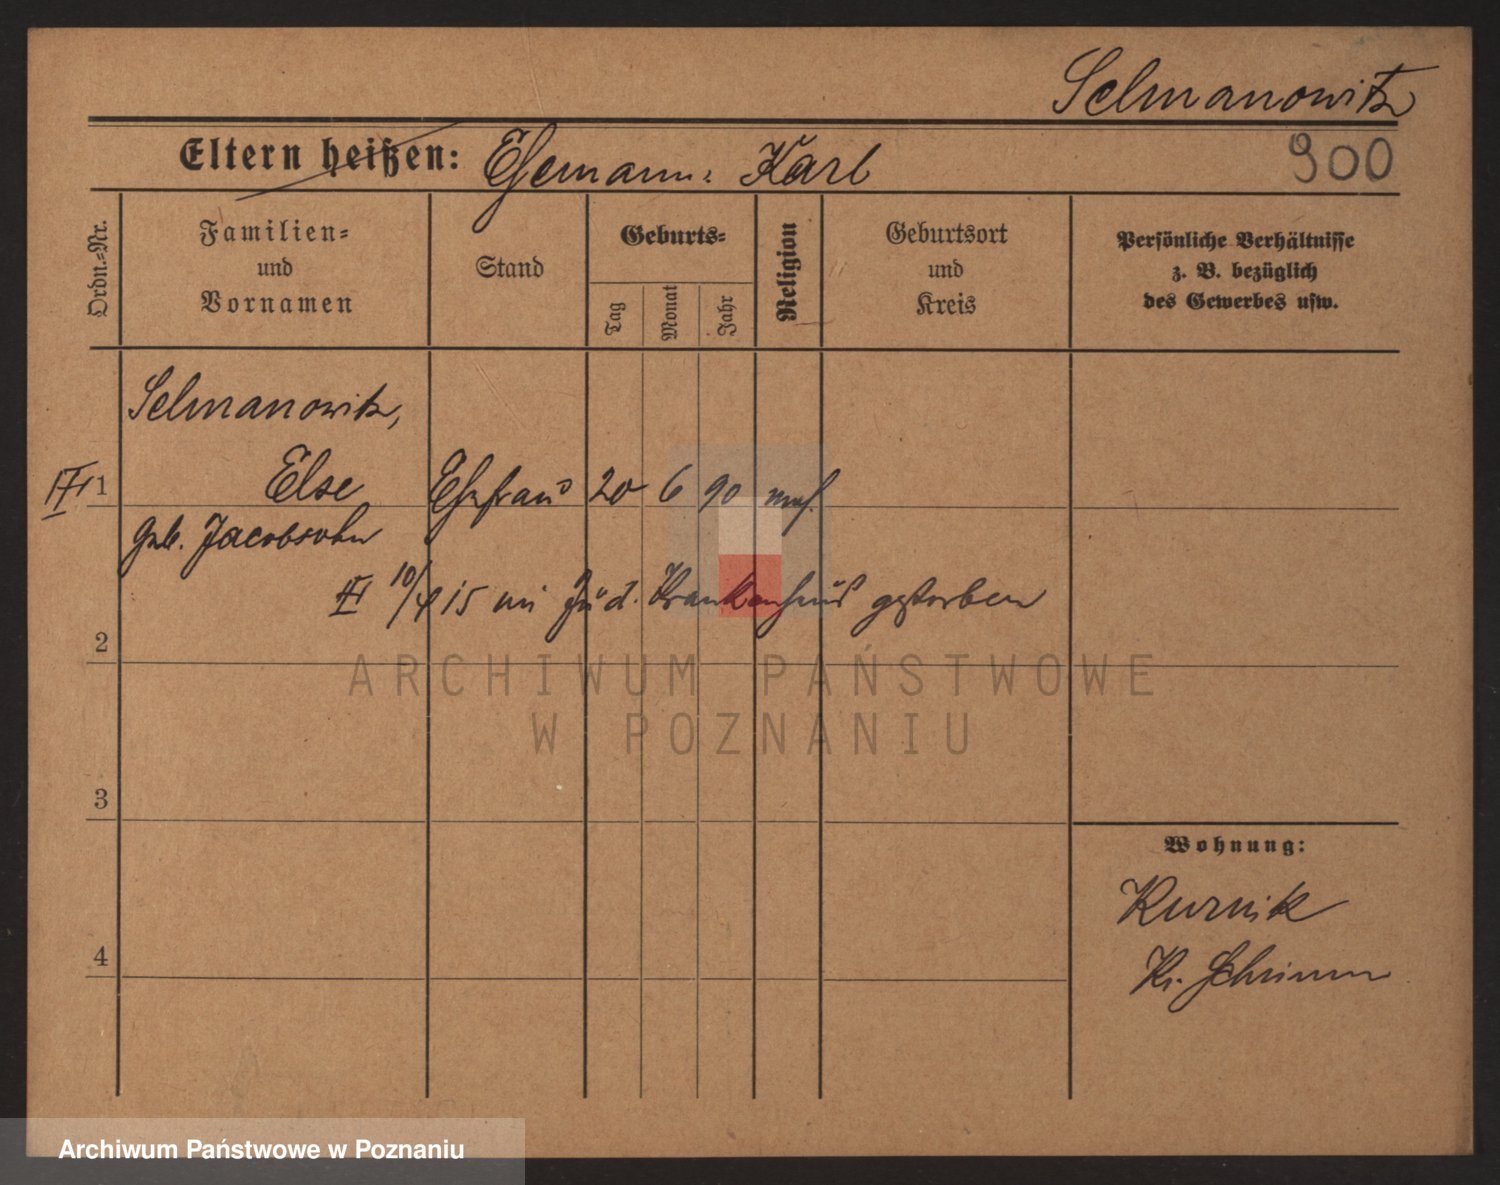 Selmanowitz
Eltern heißen: Ehemann: Karl
900
Ordn.-Nr.
Familien-
und
Vornamen
Stand
Geburts-
Tag
Monat
Jahr
Religion
Geburtsort
und
Kreis
Persönliche Verhältnisse
z. B. bezüglich
des Gewerbes usw.
Selmanowitz,
1 Else Ehefrau 20 6 90 mos.
geb. Jacobsohn
III 10/4 15 im jüd. Krankenhaus gestorben
2
ARCHIWUM PAŃSTWOWE
W POZNANIU
3
Wohnung:
Kurnik
Kr. Schrimm
4
Archiwum Państwowe w Poznaniu